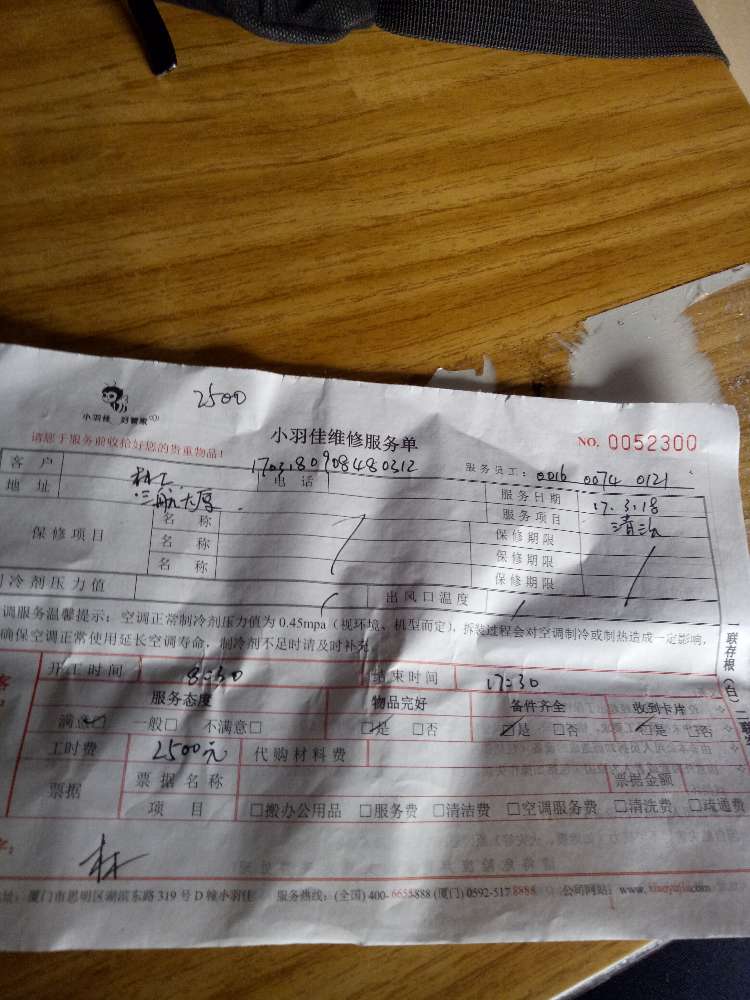 2500
小羽佳 好管家
小羽佳维修服务单
NO. 0052300
请您于服务前收拾好您的贵重物品!
1703180908480312
服务员工: 0016 0074 0121
客户 林 电话 服务日期 17.3.18
地址 三航大厦 服务项目 清洗
保修项目 名称 保修期限
名称 保修期限
名称 保修期限
冷剂压力值 出风口温度
调服务温馨提示: 空调正常制冷剂压力值为 0.45mpa (视环境、机型而定), 拆装过程会对空调制冷或制热造成一定影响,
确保空调正常使用延长空调寿命, 制冷剂不足时请及时补充
一联存根(白)
开工时间 8:30 结束时间 17:30
服务态度 物品完好 备件齐全 收到卡片
满意□ 一般□ 不满意□ □是 □否 □是 □否 □是 □否
工时费 2500元 代购材料费
票据 票据名称 票据金额
项目 □搬办公用品 □服务费 □清洁费 □空调服务费 □清洗费 □疏通费
林
址: 厦门市思明区湖滨东路 319 号 D 幢小羽佳 服务热线: (全国) 400-6655888 (厦门) 0592-5178888 公司网站: www.xiaoyujia.com